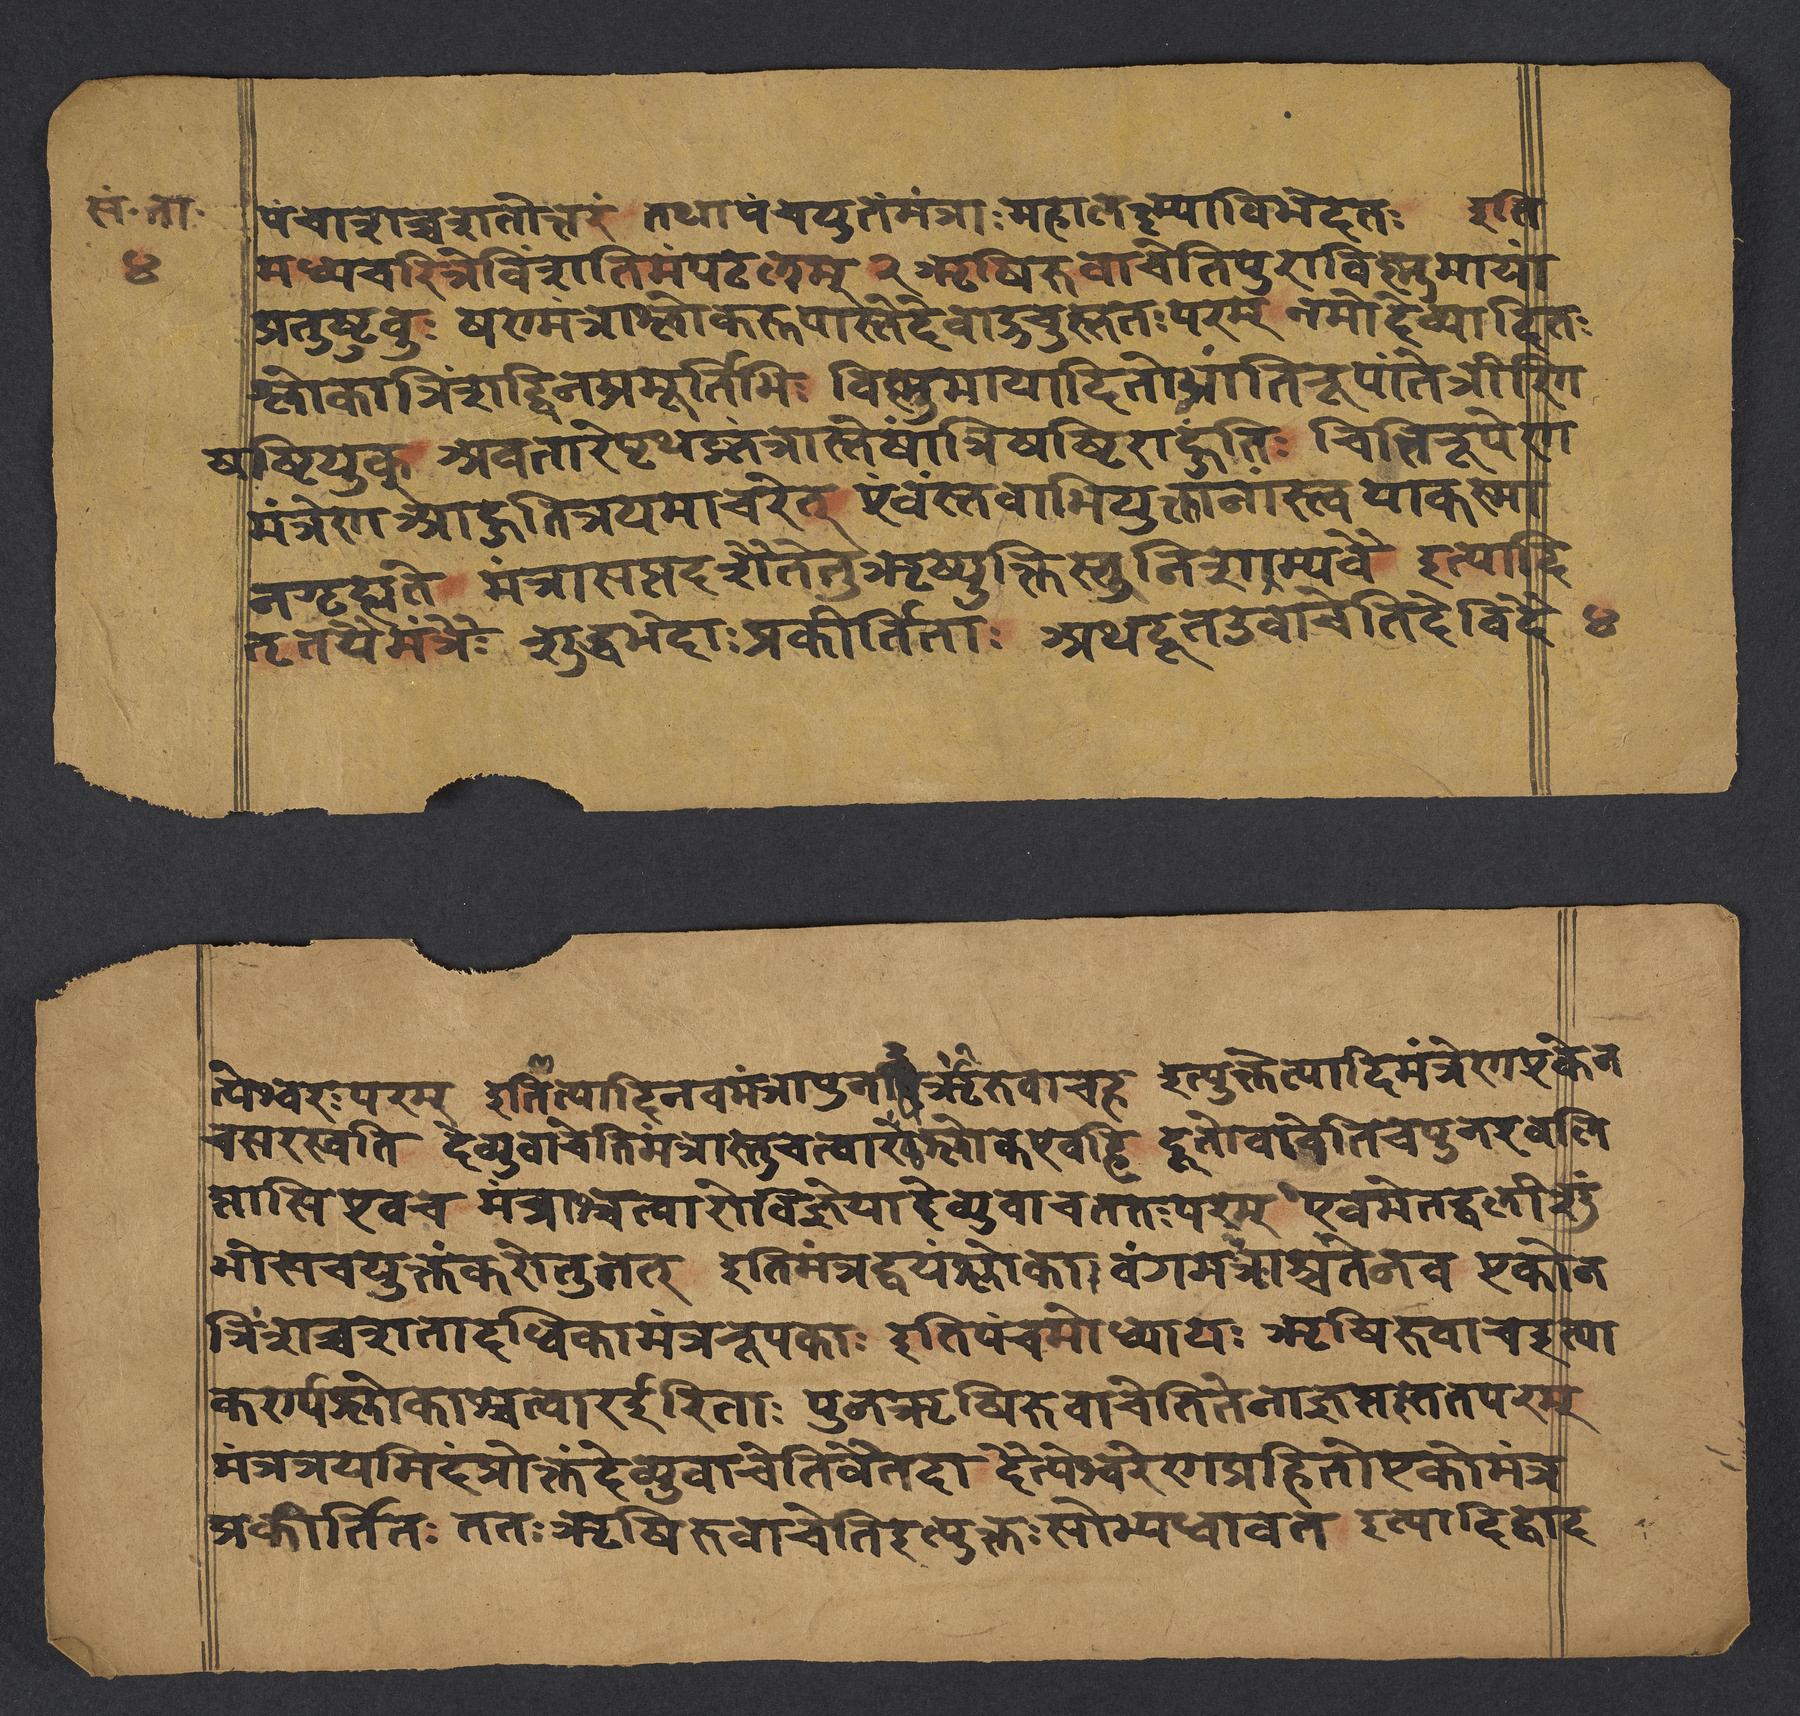 सं॰ ना॰
४
पंचाशच्चशतोत्तरं तथापंचयुतंमंत्राःमहालक्ष्म्याविभेदतः इति
मध्यचरित्रेविंशतिमंपटलम् २ ऋषिरुवाचेतिपुराविष्णुमायां
प्रतुष्टुवुः षण्मंत्राश्लोकरूपास्तेदेवाऊचुस्ततःपरम् नमोदेव्यादितः
श्लोकात्रिंशद्भिनप्रमूर्तिभिः विष्णुमायादितोभ्रांतिरूपांतेत्रीणि
षष्टियुक् अवतारेपृथङ्मंत्रास्तेषांत्रिषष्टिराहुतिः चितिरूपेण
मंत्रेणआहुतित्रयमाचरेत् एवंस्तवाभियुक्तानांस्त्वयाकस्मा
नगृह्यते मंत्रासप्तदशैतेतुऋष्युक्तिस्तुनिशम्यवै इत्यादि
तृतयैर्मंत्रैः शुद्धभेदाःप्रकीर्तिताः अथदूतउवाचेतिदेविदै ४
त्येश्वरःपरम् इतित्यादिनवमंत्रापुनऋरुवाचह इत्युक्तेत्यादिमंत्रेणएकेन
चसरस्वति देव्युवाचेतिमंत्रास्तुचत्वारश्लोकएवहि दूतोवाचेतिचपुनरवलि
प्तासिएवच मंत्राश्चत्वारोविज्ञेयादेव्युवाचततःपरम् एवमेतद्बलीशुं
भोसचयुक्तंकरोतुतत् इतिमंत्रद्वयंश्लोकावंगमंत्राश्चतेनव एकोन
त्रिंशच्चशतादधिकामंत्ररूपकाः इतिपंचमोध्यायः ऋषिरुवाचइत्या
कर्ण्यश्लोकाश्चत्वारईरिताः पुनऋषिरुवाचेतितेनाज्ञप्तस्ततपरम्
मंत्रत्रयमिदंप्रोक्तंदेव्युवाचेतिवैतदा दैत्येश्वरेणप्रहितोएकोमंत्र
प्रकीर्तितः ततःऋषिरुवाचेतिइत्युक्तःसोभ्यधावत इत्यादिद्वाद